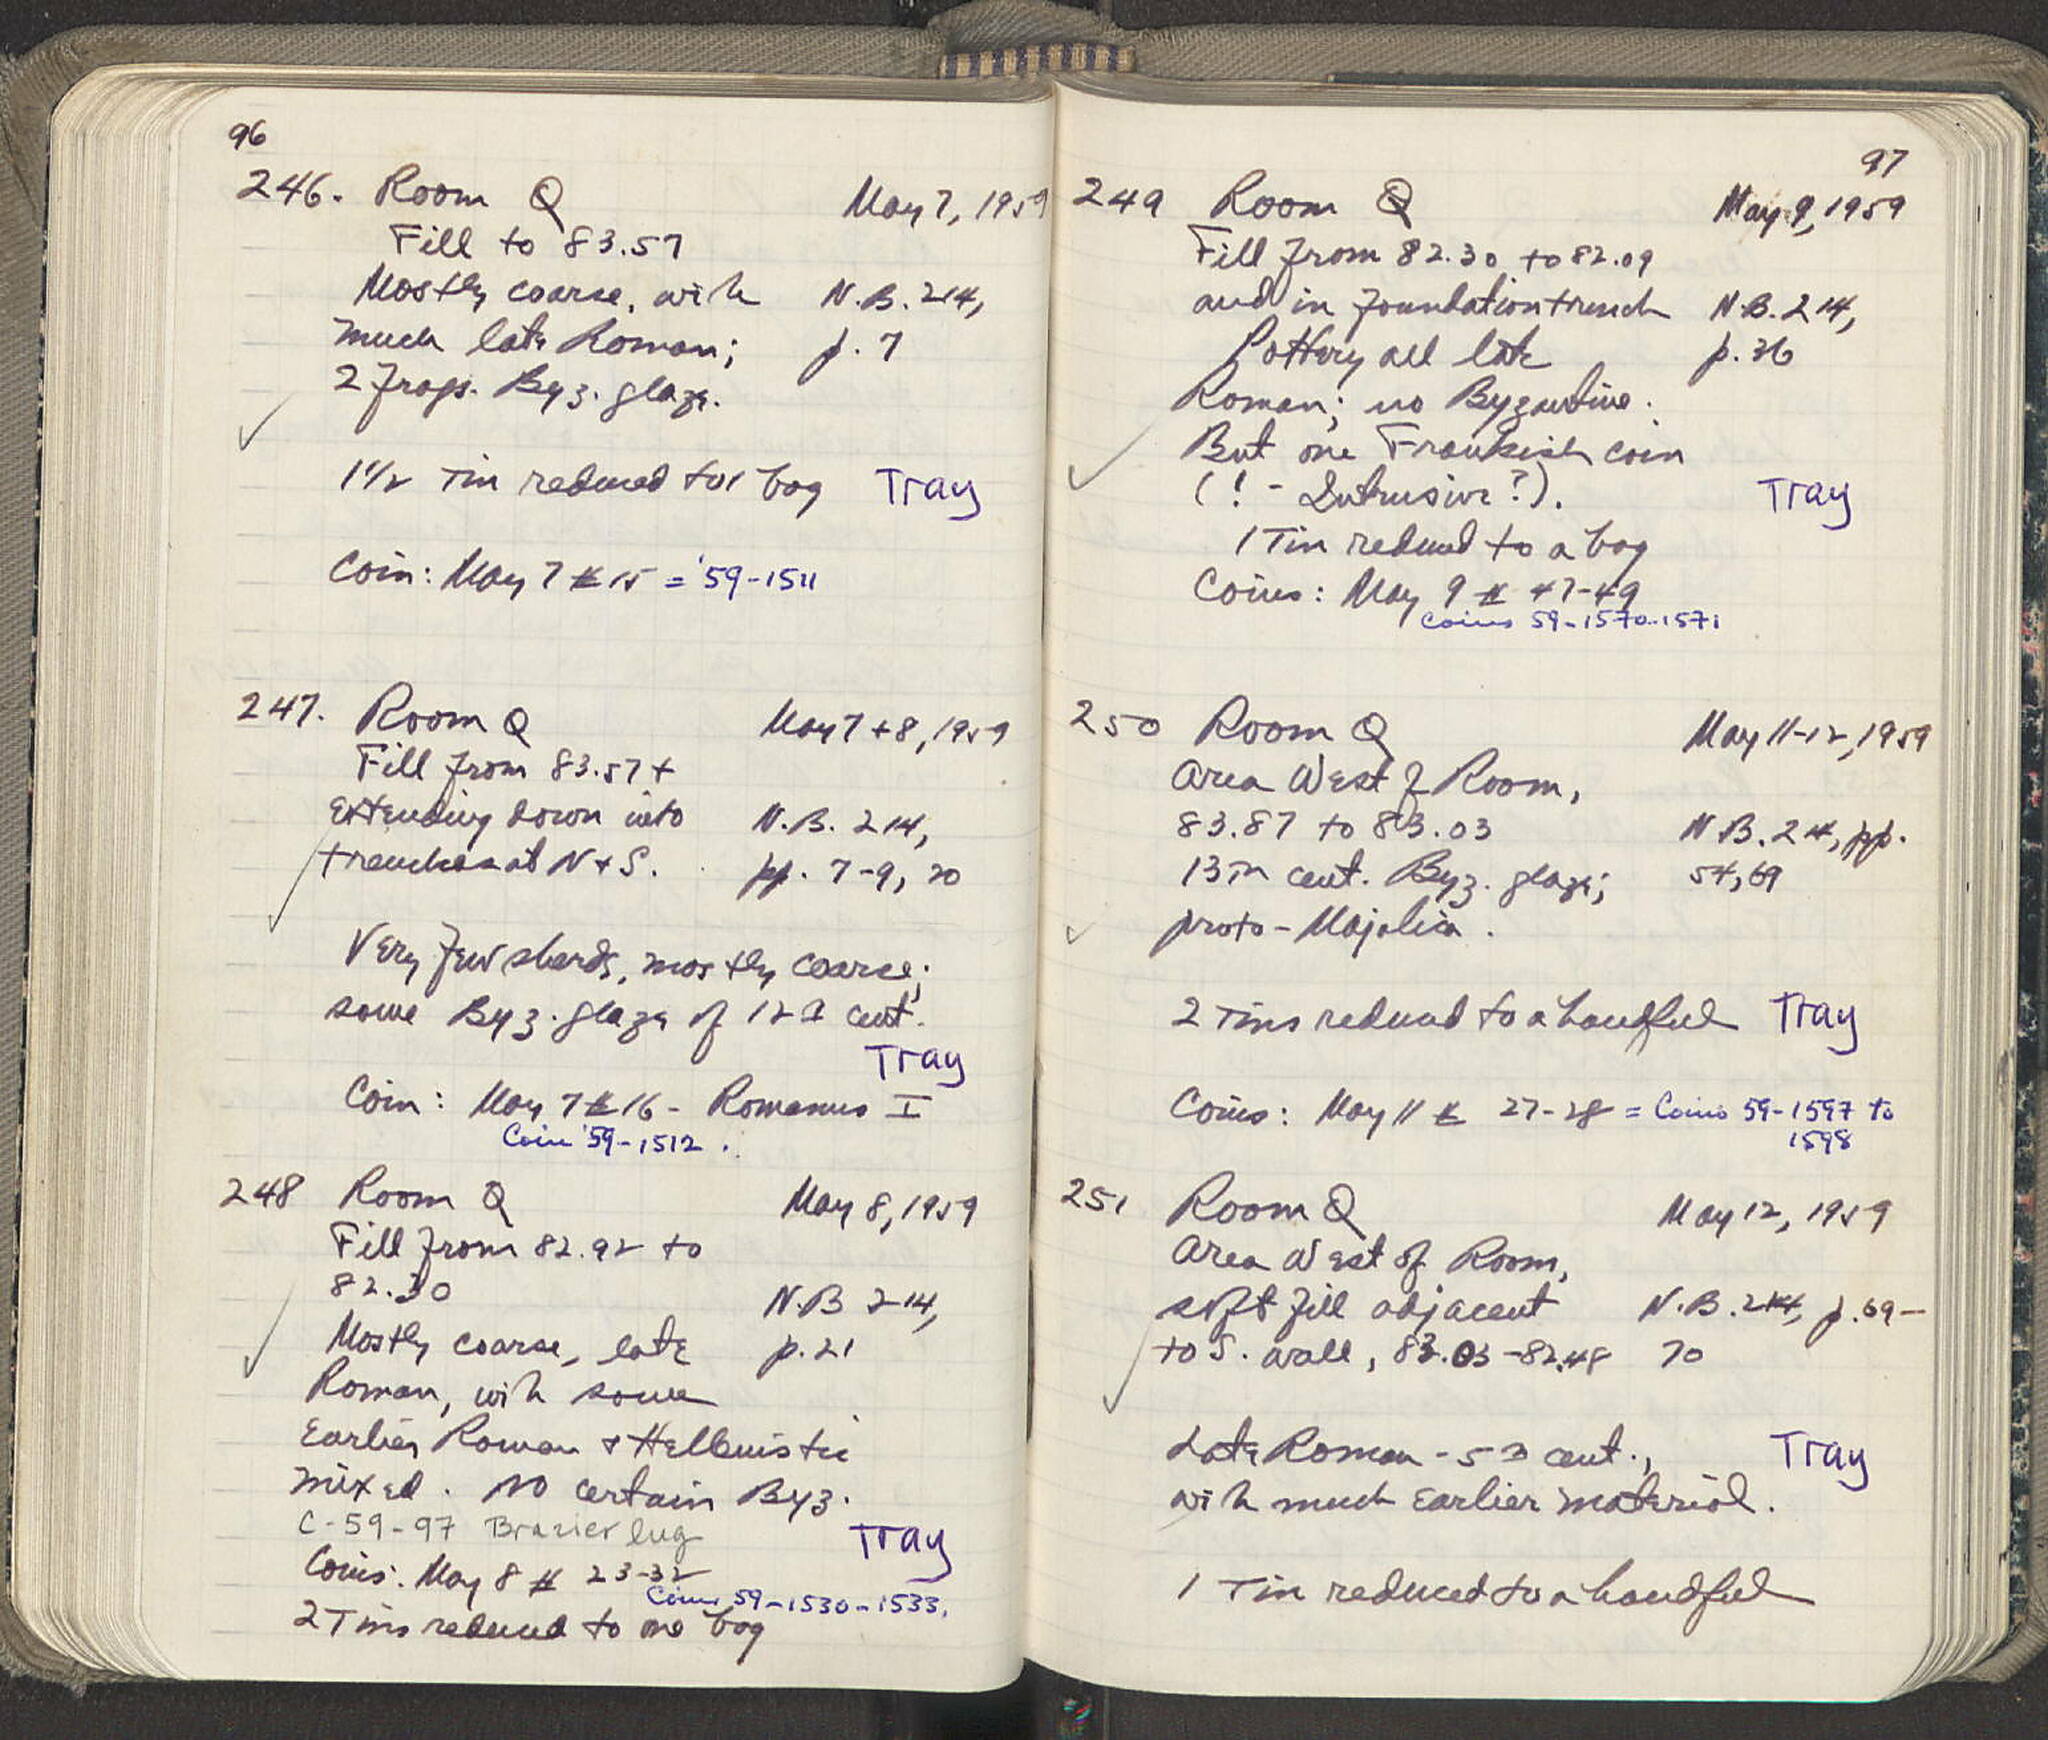 96
246. Room Q May 7, 1959
Fill to 83.57
Mostly coarse, with N.B. 214,
much late Roman; p. 7
2 frags. Byz. glaze.
1 1/2 Tin reduced to 1 bag Tray
Coin: May 7 # 15 = '59-1511
247. Room Q May 7 + 8, 1959
Fill from 83.57 +
extending down into N.B. 214,
trenches at N + S. pp. 7-9, 20
Very few sherds, mostly coarse;
some Byz. glaze of 12th cent.
Tray
Coin: May 7 # 16 - Romanus I
Coin '59-1512.
248 Room Q May 8, 1959
Fill from 82.92 to
82.30 N.B 214,
Mostly coarse, late p. 21
Roman, with some
Earlier Roman + Hellenistic
mixed. No certain Byz.
C-59-97 Brazier lug Tray
Coins: May 8 # 23-32
Coins 59-1530-1533.
2 Tins reduced to one bag
97
249 Room Q May 9, 1959
Fill from 82.30 to 82.09
and in foundation trench N.B. 214,
Pottery all late p. 36
Roman; no Byzantine.
But one Frankish coin
(! - Intrusive?). Tray
1 Tin reduced to a bag
Coins: May 9 # 47-49
Coins 59-1570-1571
250 Room Q May 11-12, 1959
Area West of Room,
83.87 to 83.03 N.B. 214, pp.
13th cent. Byz. glaze; 54, 69
proto-Majolica.
2 Tins reduced to a handful Tray
Coins: May 11 # 27-28 = Coins 59-1597 to
1598
251 Room Q May 12, 1959
Area West of Room,
soft fill adjacent N.B. 214, p. 69-
to S. wall, 83.03-82.48 70
Late Roman - 5th cent., Tray
with much Earlier material.
1 Tin reduced to a handful